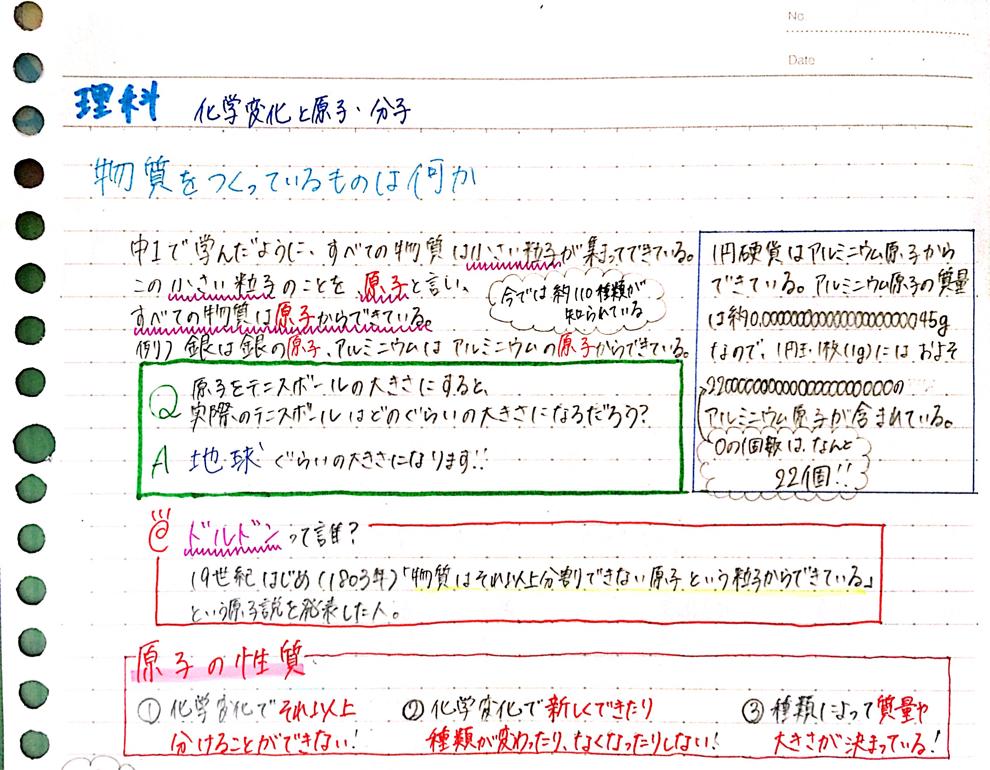 No.
Date
理科 化学変化と原子・分子
物質をつくっているものは何か
中1で学んだように、すべての物質は小さい粒子が集ってできている。
この小さい粒子のことを、原子と言い、
すべての物質は原子からできている。
今では約110種類が
知られている
例) 銀は銀の原子、アルミニウムはアルミニウムの原子からできている。
1円硬貨はアルミニウム原子から
できている。アルミニウム原子の質量
は約
なので、1円玉1枚(1g)には、およそ
の
アルミニウム原子が含まれている。
0の個数は、なんと
22個!!
Q 原子をテニスボールの大きさにすると、
実際のテニスボールはどのぐらいの大きさになるだろう?
A 地球ぐらいの大きさになります!!
ドルドンって誰?
19世紀はじめ(1803年)「物質はそれ以上分割できない原子という粒子からできている」
という原子説を発表した人。
原子の性質
① 化学変化でそれ以上
分けることができない!
② 化学変化で新しくできたり
種類が変わったり、なくなったりしない!
③ 種類によって質量や
大きさが決まっている!